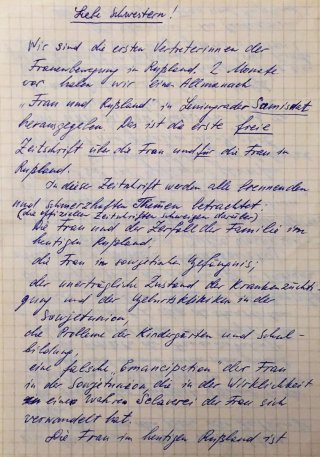 Liebe Schwestern!
Wir sind die ersten Vertreterinnen der
Frauenbewegung in Rußland. 2 Monate
vor haben wir eine Allmanach
„Frau und Rußland" in Leningrader Samisdat
herausgegeben. Das ist die erste freie
Zeitschrift über die Frau und für die Frau in
Rußland.
In diese Zeitschrift werden alle brennenden
und schmerzhaften Themen betrachtet
(die offiziellen Zeitschriften schweigen darüber)
die Frau und der Zerfall der Familie im
heutigen Rußland.
die Frau im sowjetischen Gefängnis;
der unerträgliche Zustand der
und der Geburtskliniken in der
Sowjetunion;
die Probleme der Kindergärten und Schul-
bildung;
eine falsche „Emancipation" der Frau
in der Sowjetunion, die in der Wirklichkeit
einen wahren Sclaverei der Frau sich
verwandelt hat.
Die Frau im heutigen Rußland ist